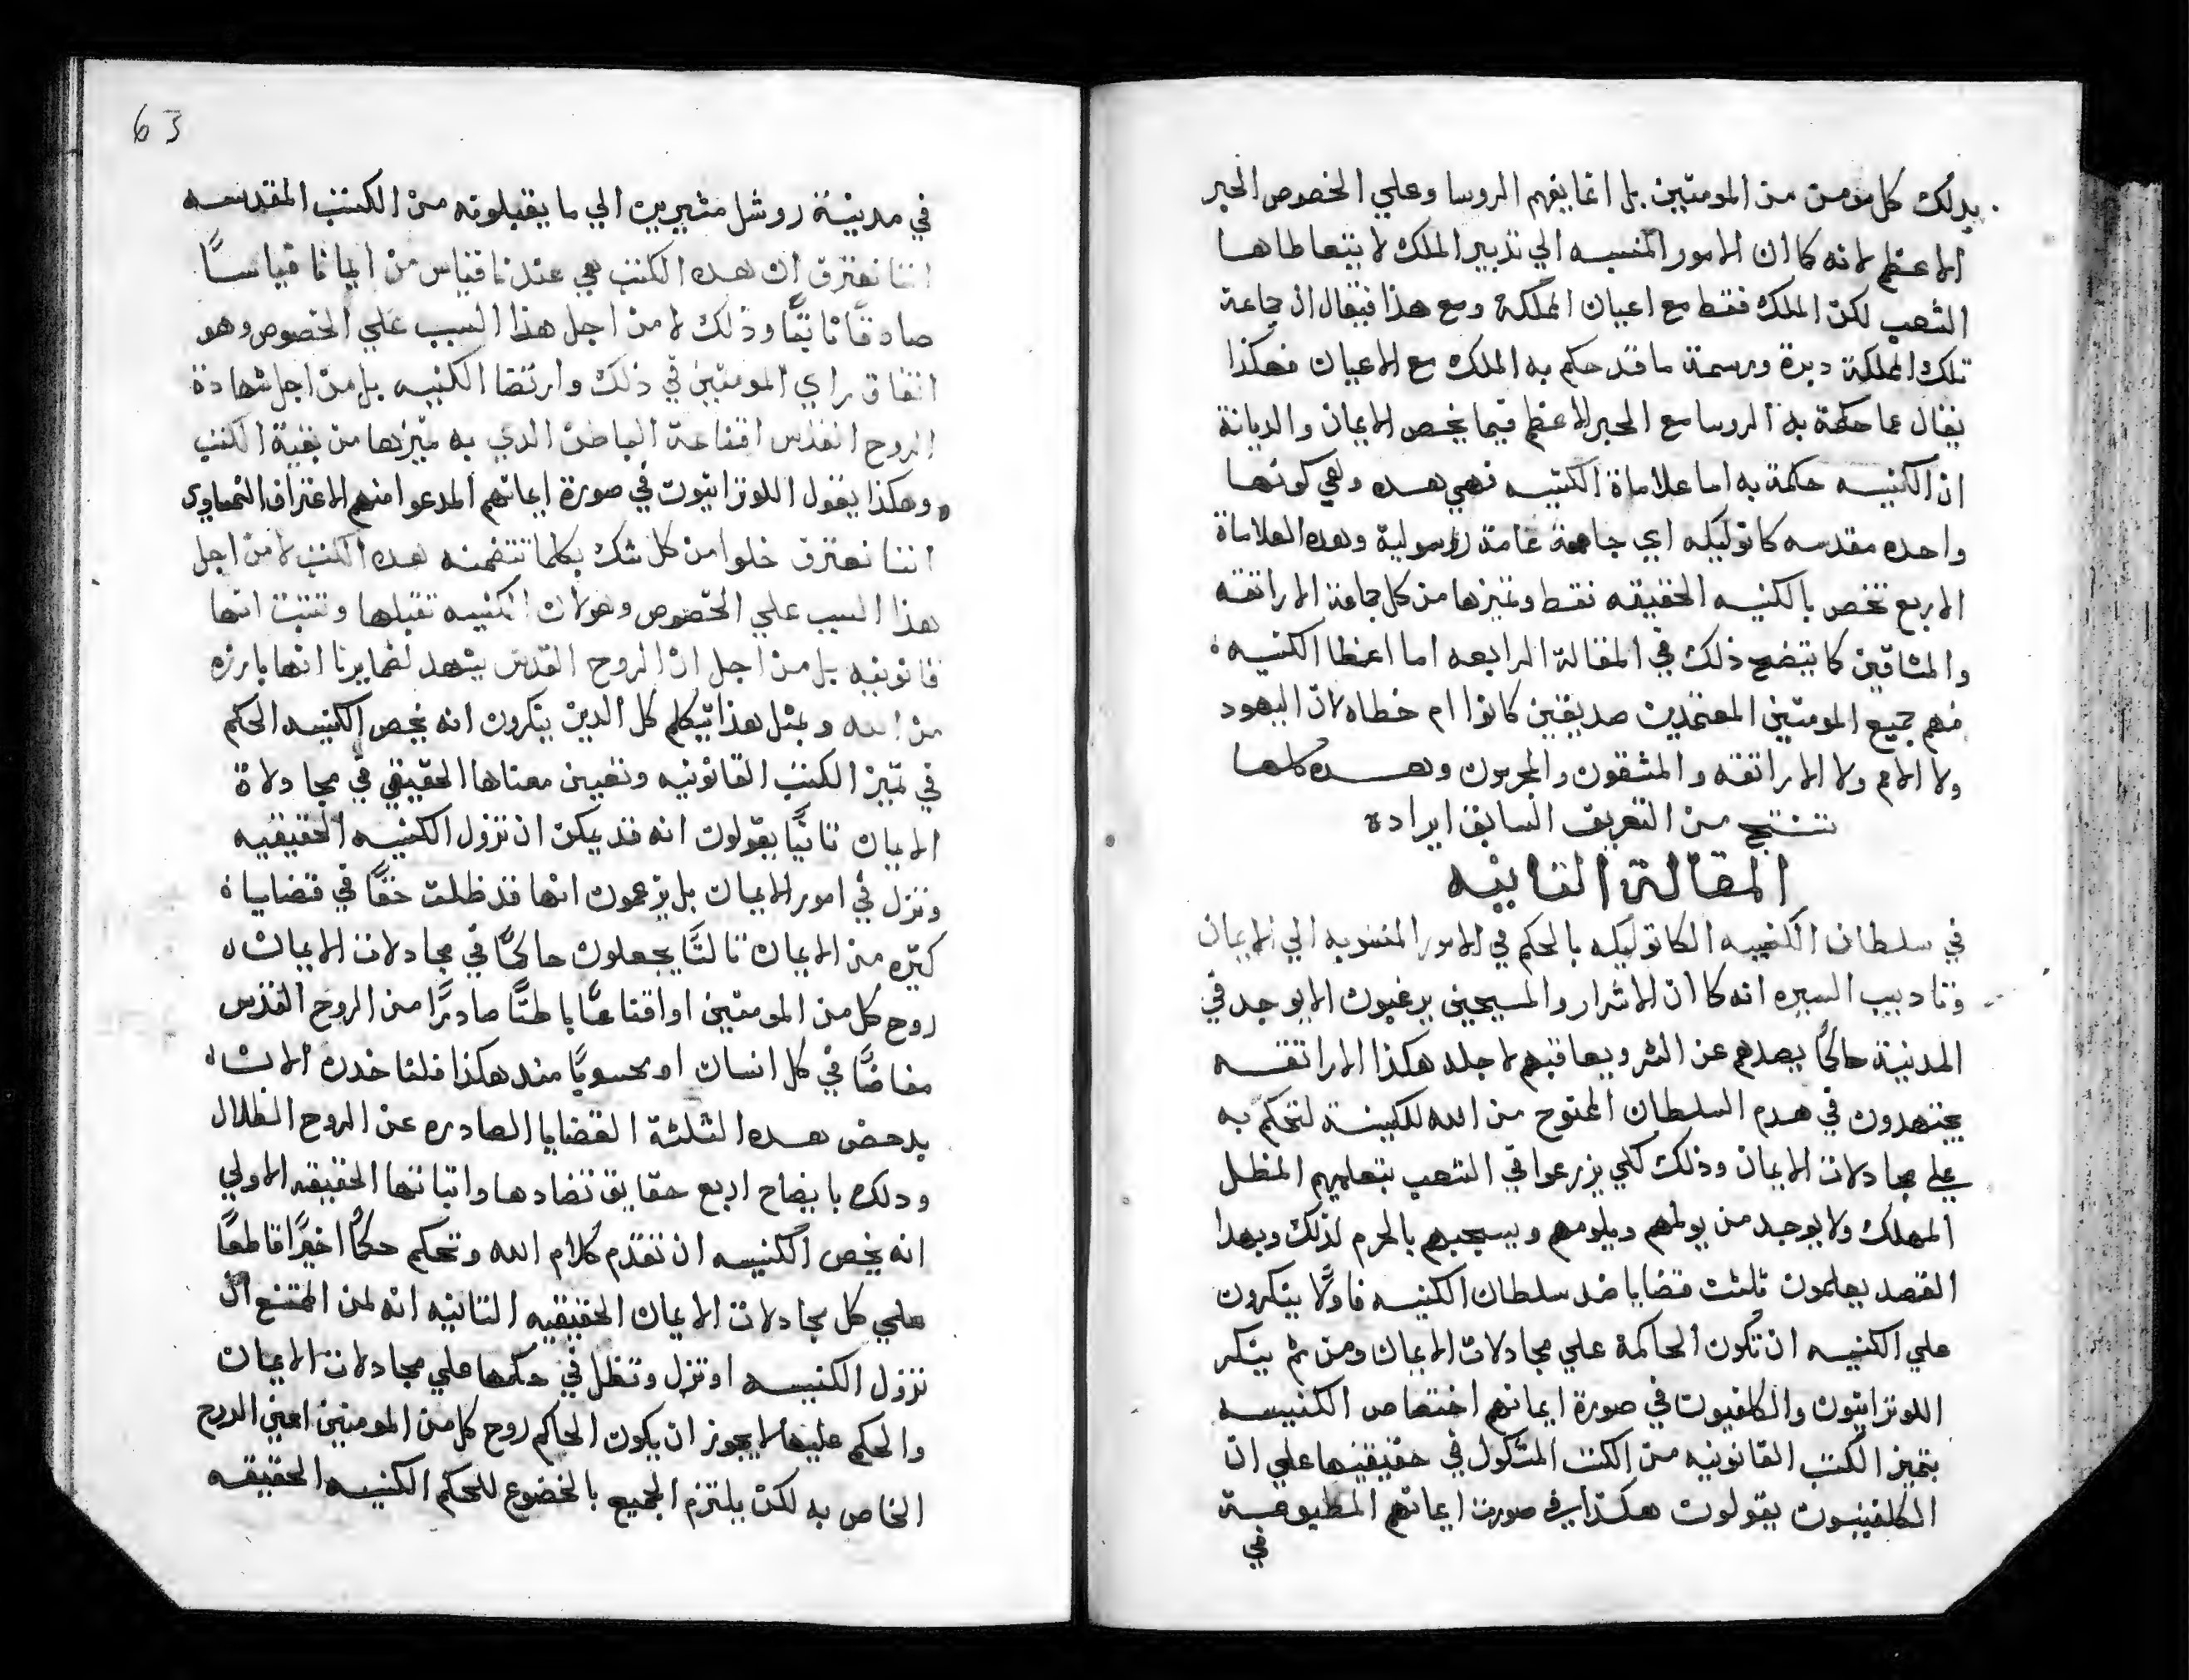 بدلك كل مومن من المومنين بل انما يفهم الروسا وعلي الخصوص الحبر
الاعظم لانه كما ان الامور المنسبه الي تدبير الملك لا يتعاطاها
الشعب لكن الملك فقط مع اعيان المملكة ومع هذا فيقال ان جماعة
تلك المملكة دبرة ورسمة ما قد حكم به الملك مع الاعيان فهكذا
يقال عما حكمة به الروسا مع الحبر الاعظم فيما يخص الايمان والديانة
ان الكنيسه حكمة به اما علاماة الكنيسه فهي هده وهي كونها
واحده مقدسه كاتوليكه اي جامعة عامة رسولية وهده العلاماة
الاربع تخص بالكنيسه الحقيقه فقط وتميزها من كل جماعة الاراتقه
والمشاقين كما يتضح ذلك في المقالة الرابعه اما اعضا الكنيسه
فهم جميع المومنين المعتمدين صديقين كانوا ام خطاه لان اليهود
ولا الامم ولا الاراتقه والمشقون والمحرمون وهده كلها
تستنتج من التعريف السابق ايراده
المقالة التانيه
في سلطان الكنيسه الكاتوليكه بالحكم في الامور المنسوبه الي الايمان
وتاديب السيره انه كما ان الاشرار والمسيحيين يرغبون الا يوجد في
المدينة حاكمًا يصدهم عن الشر ويعاقبهم لاجله هكذا الاراتقه
يجتهدون في هدم السلطان الممنوح من الله للكنيسة لتحكم به
علي مجادلات الايمان وذلك لكي يزرعوا في الشعب بتعاليمهم المظل
المهلك ولا يوجد من يولمهم ويلومهم ويسحبهم بالحرم لذلك وبهدا
القصد يعلمون تلتت قضايا ضد سلطان الكنيسه فاولًا ينكرون
علي الكنيسه ان تكون الحاكمة علي مجادلات الايمان ومن ثم ينكر
اللوترانيون والكلفنيون في صورة ايمانهم اختصاص الكنيسه
بتميز الكتب القانونيه من الكتب المشكول في حقيقيتها علي ان
الكلفنيون يقولون هكذا في صورت ايمانهم المطبوعة
في
63
في مدينة روشل مشيرين الي ما يقبلونه من الكتب المقدسه
اننا نعترف ان هده الكتب هي عندنا قياس من ايماننا قياسًا
صادقًا تابتًا وذلك لا من اجل هذا السبب علي الخصوص وهو
اتفاق راي المومنين في ذلك وارتضا الكنيسه بل من اجل شهادة
الروح القدس اقناعة الباطن الدي به نميزها من بقية الكتب
وهكذا يقول اللوترانيون في صورة ايمانهم المدعوا منهم الاعتراف النمساوي
اننا نعترف خلوا من كل شك بكلما تتضمنه هده الكتب لا من اجل
هذا السبب علي الخصوص وهو لان الكنيسه تقبلها وتتبت انها
قانونيه بل من اجل ان الروح القدس يشهد لضمايرنا انها بارزه
من الله وبمثل هذا يتكلم كل الدين ينكرون انه يخص الكنيسه الحكم
في تميز الكتب القانونيه وتعيين معناها الحقيقي في مجادلاة
الايمان تانيًا يقولون انه قد يمكن ان تزول الكنيسه الحقيقيه
وتزل في امور الايمان بل يزعمون انها قد ظلت حقًا في قضايا
كتيره من الايمان تالتًا يجعلون حاكمًا في مجادلات الايمان
روح كل من المومنين او اقناعًا باطنًا صادرًا من الروح القدس
مفاضًا في كل انسان او محسوبًا منه هكذا فلناخدن الان
بدحض هده التلتة القضايا الصادره عن الروح الظلال
ودلك بايضاح اربع حقايق تضادها واتباتها الحقيقه الاولي
انه يخص الكنيسه ان تقدم كلام الله وتحكم حكمًا اخيرًا قاطعًا
علي كل مجادلات الايمان الحقيقيه التانيه انه لمن الممتنع ان
تزول الكنيسه او تزل وتظل في حكمها علي مجادلات الايمان
والحكم عليها لا يجوز ان يكون الحاكم روح كل من المومنين اعني الروح
الخاص به لكن يلتزم الجميع بالخضوع للحكم الكنيسه الحقيقه